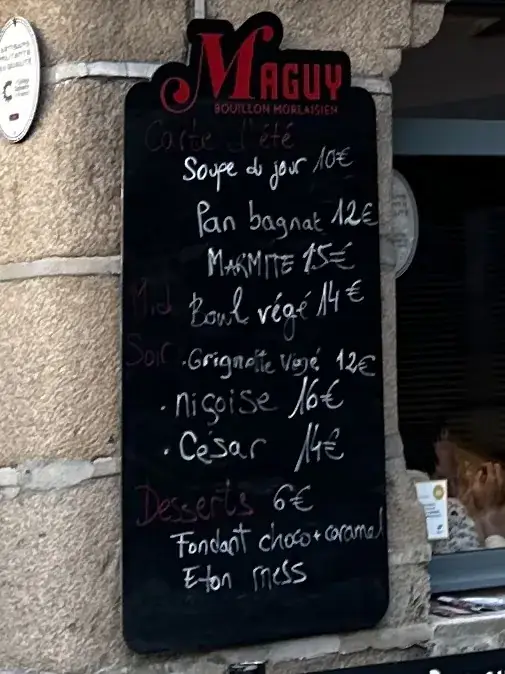 MAGUY
BOUILLON MORLAISIEN
Carte d'été
Soupe du jour 10€
Pan bagnat 12€
MARMITE 15€
Midi
Bowl végé 14€
Soir
• Grignotte végé 12€
• niçoise 16€
• César 14€
Desserts 6€
Fondant choco+caramel
Eton mess